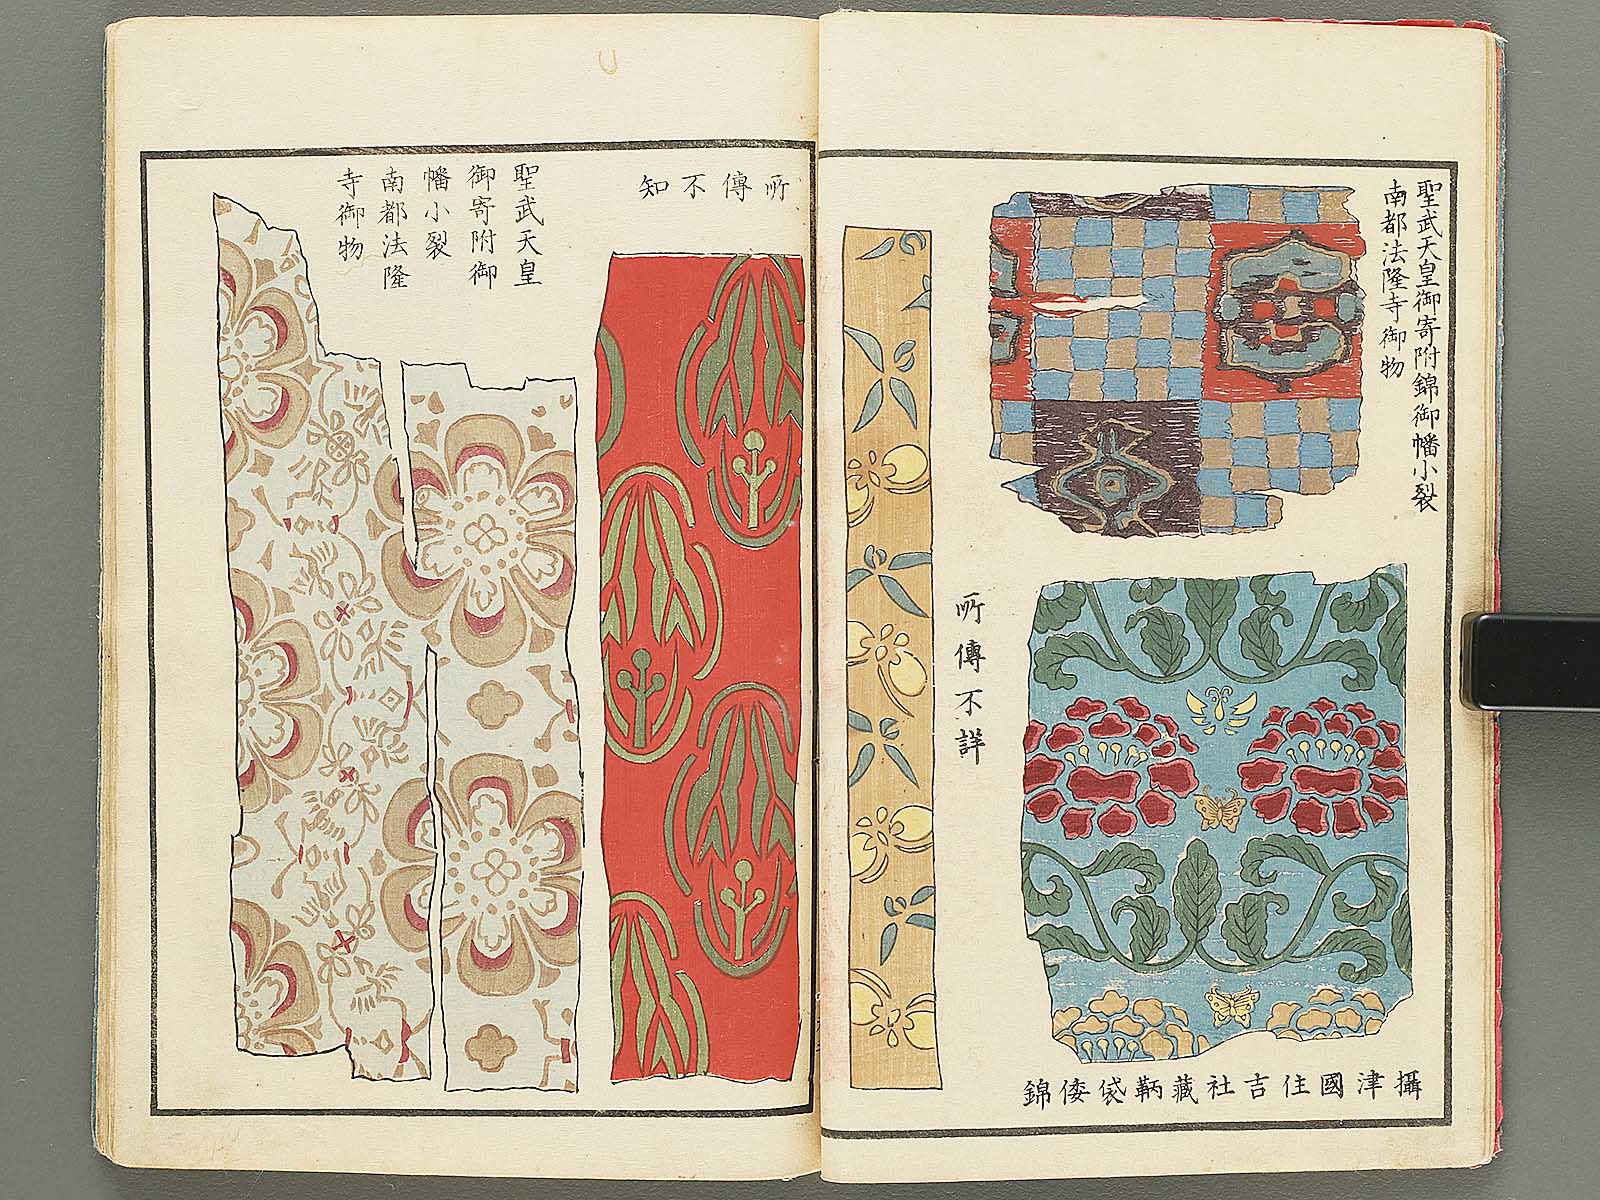 聖武天皇御寄附錦御幡小裂
南都法隆寺御物
所傳不詳
攝津國住吉社藏鞆袋倭錦
所傳不知
聖武天皇
御寄附御
幡小裂
南都法隆
寺御物